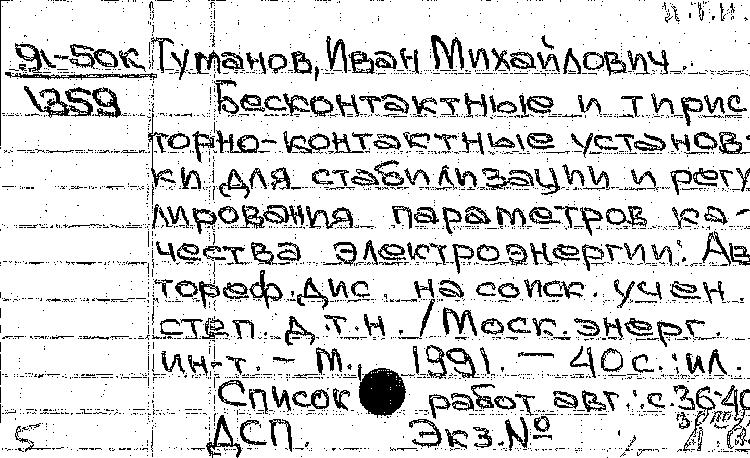 И.Т.Н.
91-50к Туманов, Иван Михайлович.
1359 Бесконтактные и тирис
торно-контактные установ-
ки для стабилизации и регу
лирования параметров ка-
чества электроэнергии: Ав
тореф. дис. на соиск. учен.
степ. д.т.н. / Моск. энерг.
ин-т. - М., 1991. - 40 с.: ил.
Список работ авт.: с. 36-40
5 ДСП. Экз. №